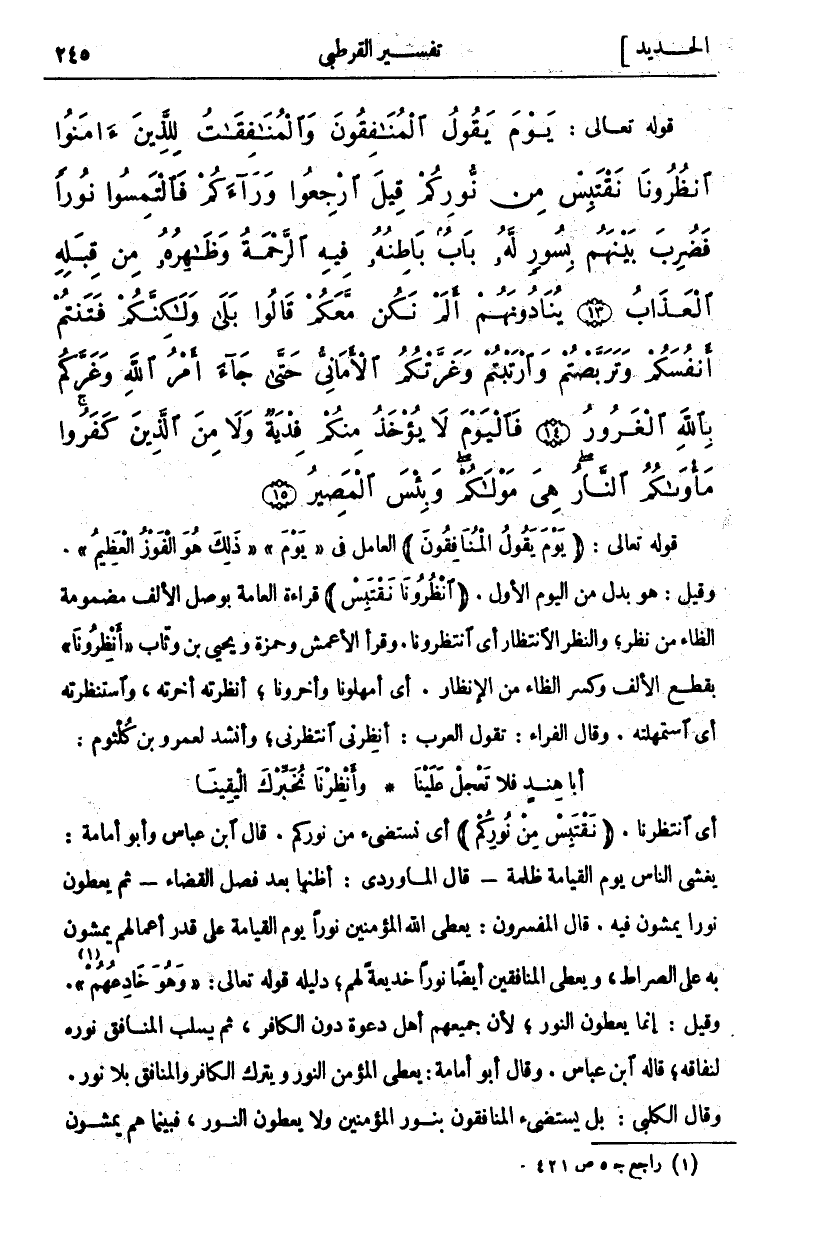 الحـديد ] تفســير القرطبي ٢٤٥
قوله تعالى : يَوْمَ يَقُولُ ٱلْمُنَٰفِقُونَ وَٱلْمُنَٰفِقَٰتُ لِلَّذِينَ ءَامَنُوا
ٱنظُرُونَا نَقْتَبِسْ مِن نُّورِكُمْ قِيلَ ٱرْجِعُوا وَرَآءَكُمْ فَٱلْتَمِسُوا نُورًا
فَضُرِبَ بَيْنَهُم بِسُورٍ لَّهُۥ بَابٌ بَاطِنُهُۥ فِيهِ ٱلرَّحْمَةُ وَظَٰهِرُهُۥ مِن قِبَلِهِ
ٱلْعَذَابُ ١٣ يُنَادُونَهُمْ أَلَمْ نَكُن مَّعَكُمْ قَالُوا بَلَىٰ وَلَٰكِنَّكُمْ فَتَنتُمْ
أَنفُسَكُمْ وَتَرَبَّصْتُمْ وَٱرْتَبْتُمْ وَغَرَّتْكُمُ ٱلْأَمَانِيُّ حَتَّىٰ جَآءَ أَمْرُ ٱللَّهِ وَغَرَّكُم
بِٱللَّهِ ٱلْغَرُورُ ١٤ فَٱلْيَوْمَ لَا يُؤْخَذُ مِنكُمْ فِدْيَةٌ وَلَا مِنَ ٱلَّذِينَ كَفَرُوا ۚ
مَأْوَىٰكُمُ ٱلنَّارُ ۖ هِيَ مَوْلَىٰكُمْ ۖ وَبِئْسَ ٱلْمَصِيرُ ١٥
قوله تعالى : ﴿ يَوْمَ يَقُولُ الْمُنَافِقُونَ ﴾ العامل فى « يَوْمَ » « ذَلِكَ هُوَ الْفَوْزُ الْعَظِيمُ » .
وقيل : هو بدل من اليوم الأول . ﴿ ٱنْظُرُونَا نَقْتَبِسْ ﴾ قراءة العامة بوصل الألف مضمومة
الظاء من نظر؛ والنظر الانتظار أى ٱنتظرونا. وقرأ الأعمش وحمزة ويحيى بن وثّاب «أَنْظِرُونَا»
بقطع الألف وكسر الظاء من الإنظار . أى أمهلونا وأخرونا ؛ أنظرته أخرته ، وٱستنظرته
أى ٱستمهلته . وقال الفراء : تقول العرب : أنظرنى ٱنتظرنى؛ وأنشد لعمرو بن كُلْثوم :
أبا هِنـدٍ فلا تَعْجَلْ عَلَيْنَا * وأَنْظِرْنَا نُخَبِّرْكَ الْيَقِينَـا
أى ٱنتظرنا . ﴿ نَقْتَبِسْ مِنْ نُورِكُمْ ﴾ أى نستضىء من نوركم . قال ٱبن عباس وأبو أمامة :
يغشى الناس يوم القيامة ظلمة — قال المـاوردى : أظنها بعد فصل القضاء — ثم يعطون
نورا يمشون فيه . قال المفسرون : يعطى الله المؤمنين نوراً يوم القيامة على قدر أعمالهم يمشون
به على الصراط، ويعطى المنافقين أيضًا نوراً خديعة لهم؛ دليله قوله تعالى: « وَهُوَ خَادِعُهُمْ (١) ».
وقيل : إنما يعطون النور ؛ لأن جميعهم أهل دعوة دون الكافر ، ثم يسلب المنـافق نوره
لنفاقه؛ قاله ٱبن عباس . وقال أبو أمامة: يعطى المؤمن النور ويترك الكافر والمنافق بلا نور .
وقال الكلبى : بل يستضىء المنافقون بنـور المؤمنين ولا يعطون النـور ، فبينما هم يمشـون
(١) راجع جـ ٥ ص ٤٢١ .